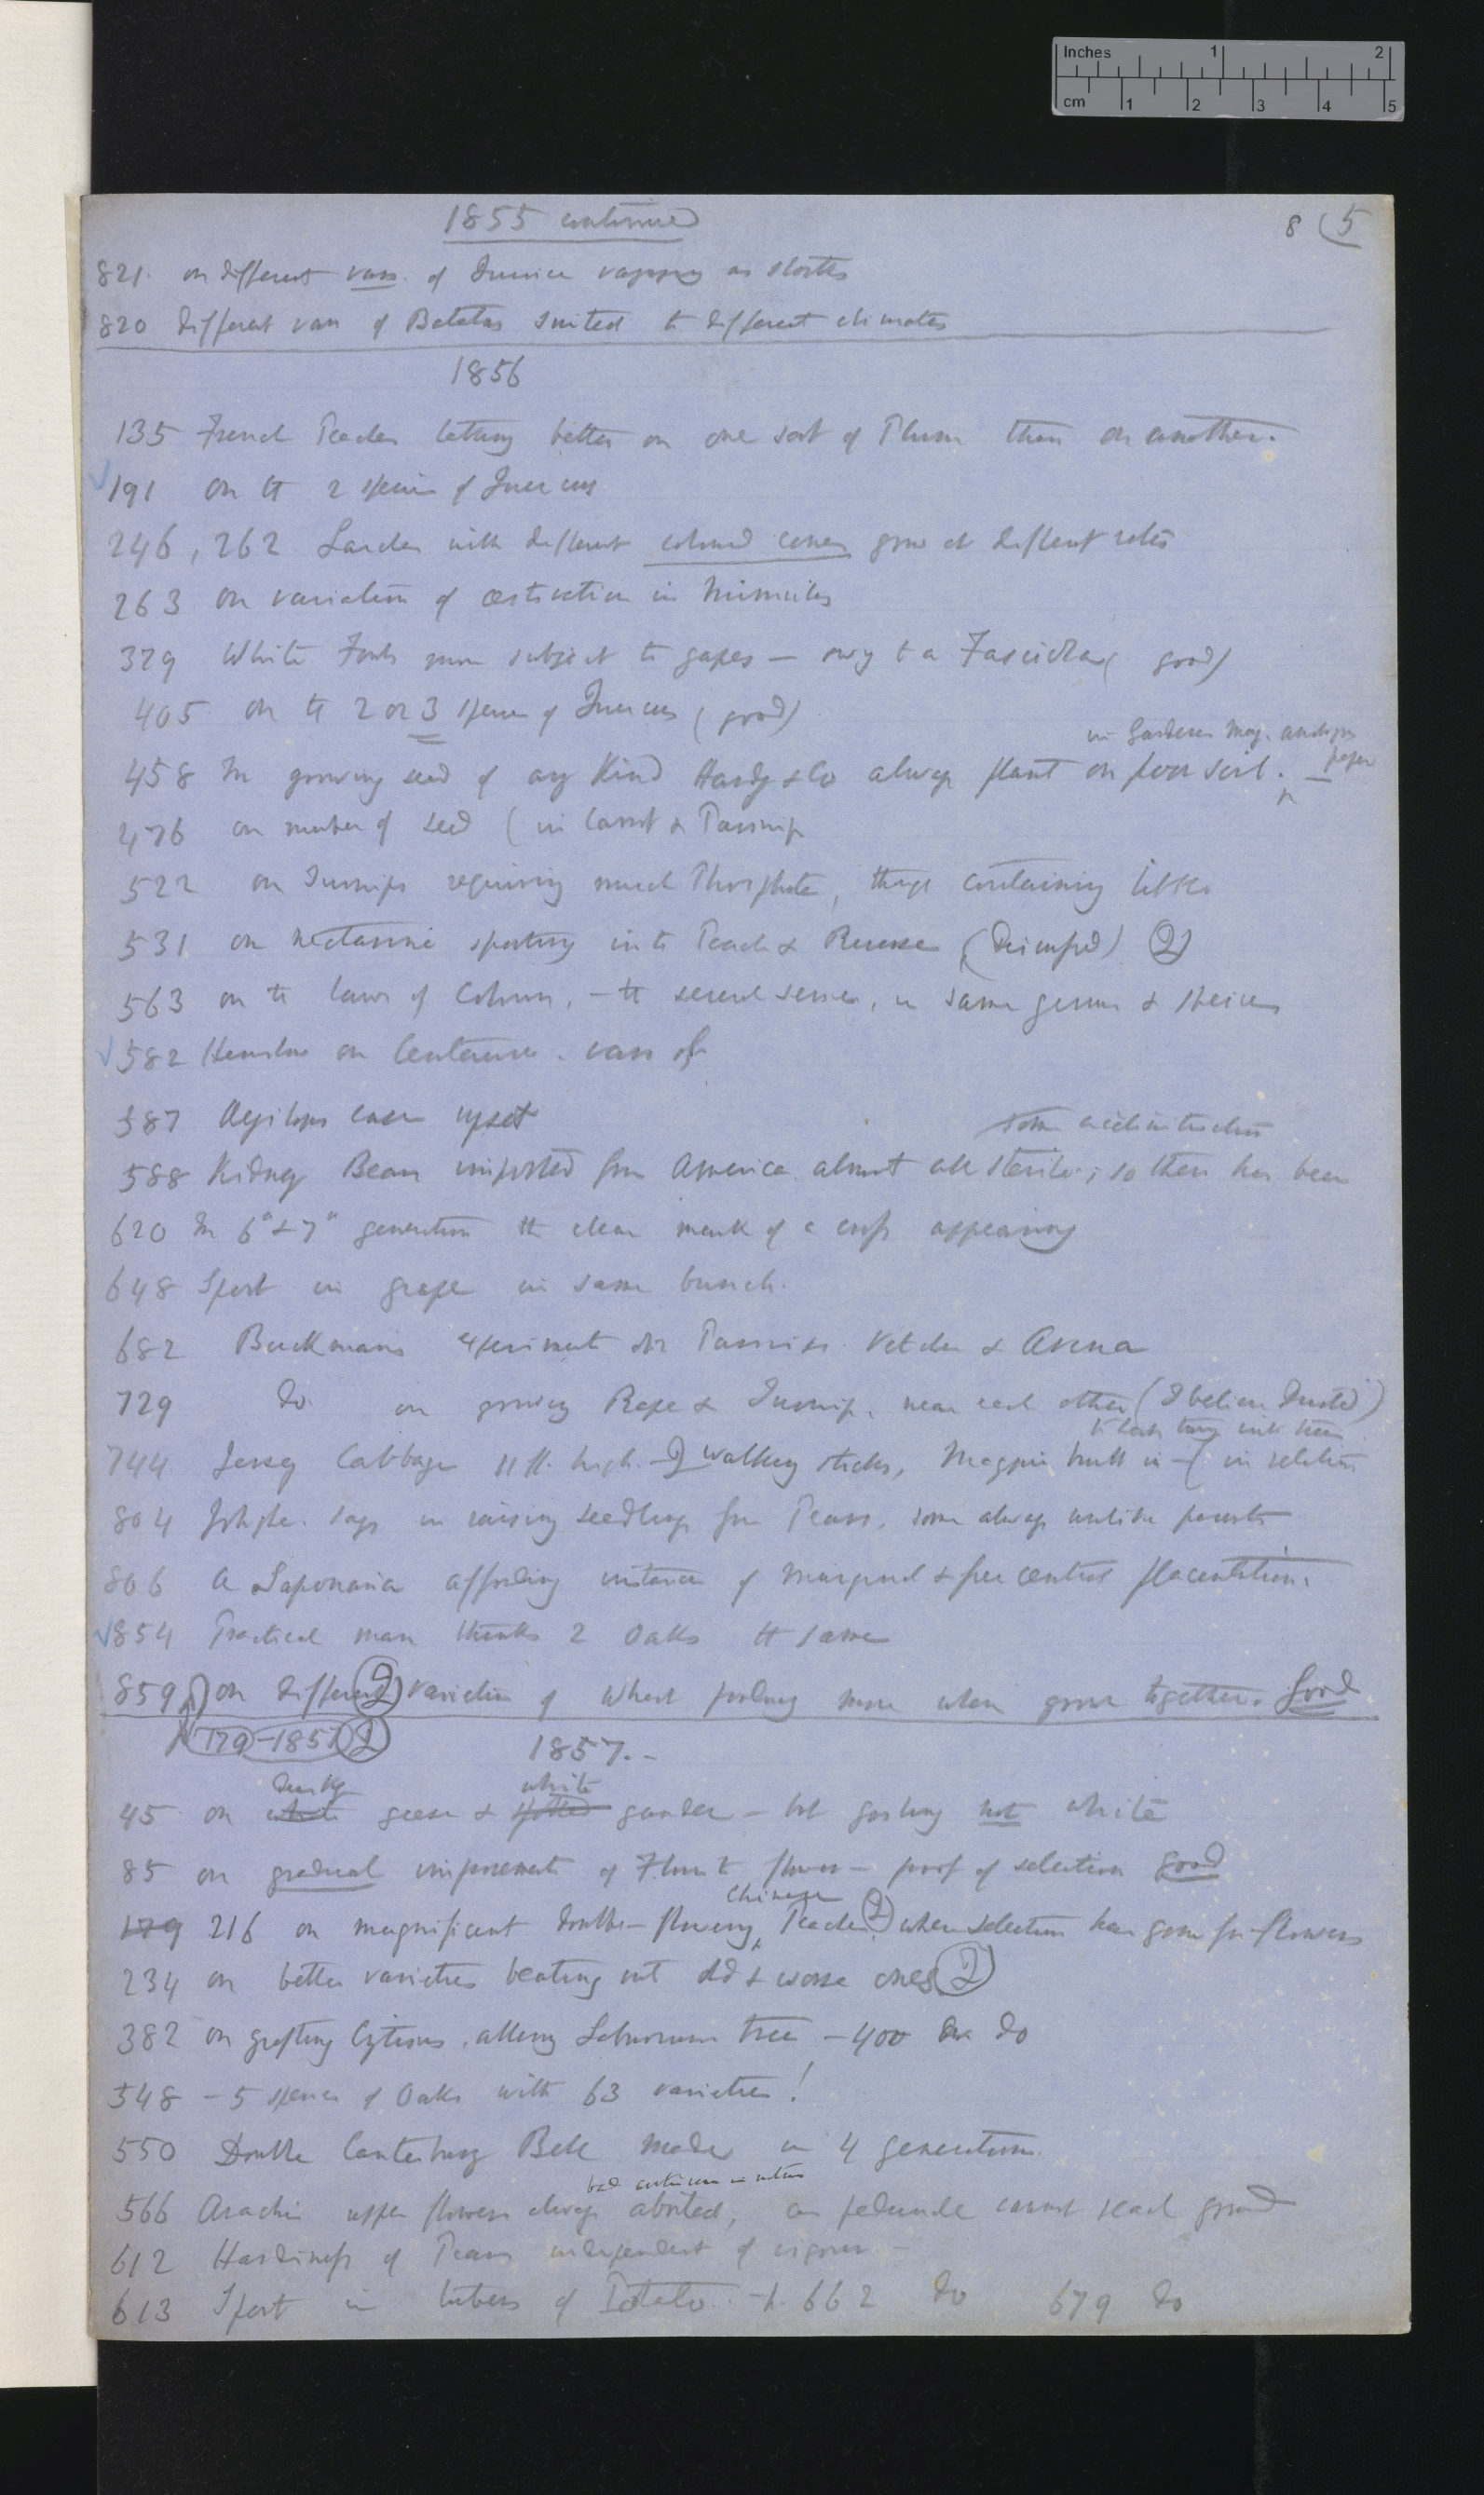 Inches 1 2
cm 1 2 3 4 5
1855 continued
8 (5
821. on different vars. of varying as stocks
820 different vars of Batatas suited to different climates
1856
135 French Peaches better on one sort of Plum than on another.
191 on the 2 species of Quercus
246, 262 Larches with different coloured cones grow at different rates
263 on variation of æstivation in Mimulus
329 White Fowls more subject to gapes — owing to a Fasciola (good)
405 on the 2 or 3 species of Quercus (good)
in Gardeners Mag.
paper
458 In growing seed of any kind Hardy & Co always plant on poor soil. —
476 on number of seed (in Carrot & Parsnip
522 on Turnips requiring much Phosphate, though containing little
531 on nectarine sporting into Peach & Reverse (Q)
563 on the laws of Colours, — the several series, in same genus & species
582 Henslow on Centaurea. vars of
587 Aegilops case upset
some acclimatisation
588 Kidney Beans imported from America almost all sterile; so there has been
620 In 6th & 7th generation the clear mark of a cross appearing
648 Sport in grape in same bunch.
682 Buckmans experiment on Parsnips Vetches & Avena
729 do. on growing Rape & Turnip, near each other (I believe Quoted)
744 Jersey Cabbage 11 ft. high. Q walking sticks, Magpie built in — ( in relation
804 says in raising seedlings from Pears, some always unlike parents
806 A Saponaria affording instance of marginal & free central placentation.
854 Practical man thinks 2 Oaks the same
859 on different Q varieties of Wheat yielding more when grown together. Good
729 – 1857 Q
1857. –
dusky white
45 on white geese & spotted gander — but gosling not white
85 on gradual improvement of flowers — proof of selection good
Chinese
179 216 on magnificent double-flowering Peaches Q when selection has gone for flowers
234 on better varieties beating out old & worse ones Q
382 on grafting Cytisus. Laburnum tree — 400 do
548 – 5 species of Oaks with 63 varieties!
550 Double Canterbury Bell made in 4 generations.
566 Arachis upper flowers always aborted, as peduncle cannot reach ground
612 Hardiness of Pears independent of vigour —
613 Sport in tubers of Potato. p. 662 do 679 do